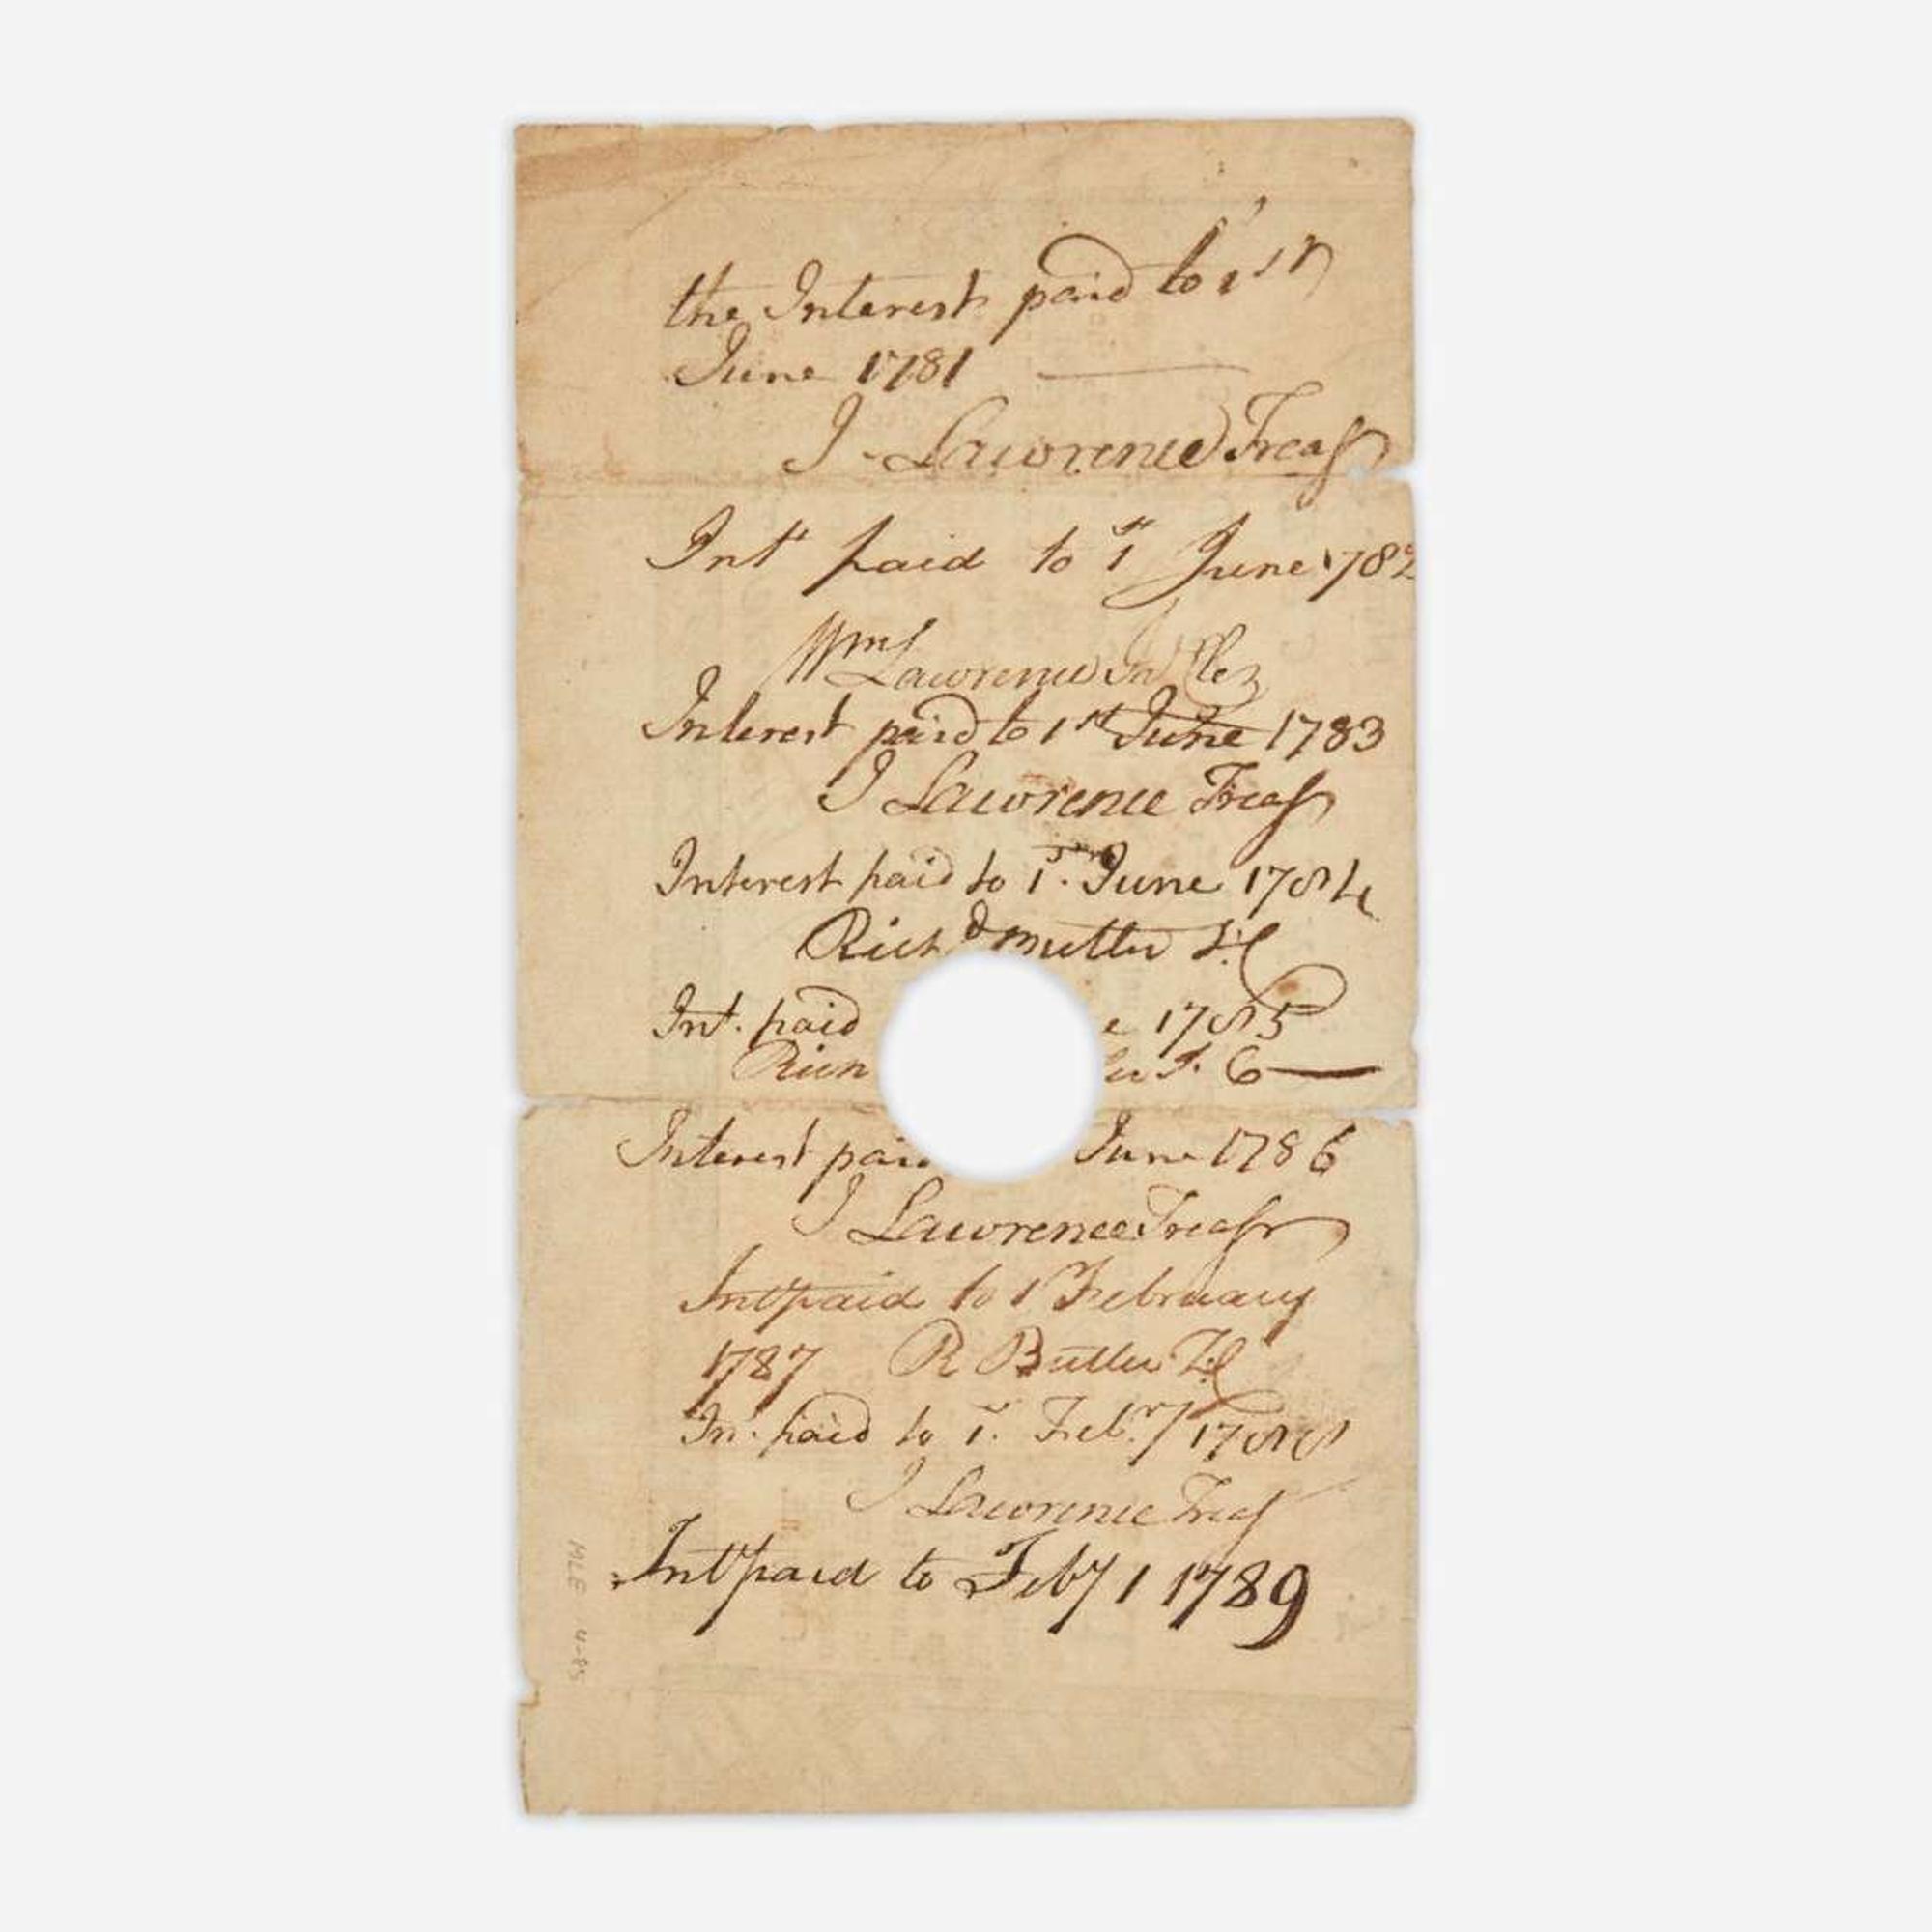 the Interest paid to 1st
June 1781
J Lawrence Treasr
Intt paid to 1st June 1782
Wm Lawrence
Interest paid to 1st June 1783
J Lawrence Treasr
Interest paid to 1st June 1784
Richd
Int. paid e 1785
Interest paid June 1786
J Lawrence Treasr
Intt paid to 1 February
1787 R Butler
Int. paid to 1. Febry 1788
J Lawrence Treasr
Intt paid to Feby 1 1789
MLE 4-85